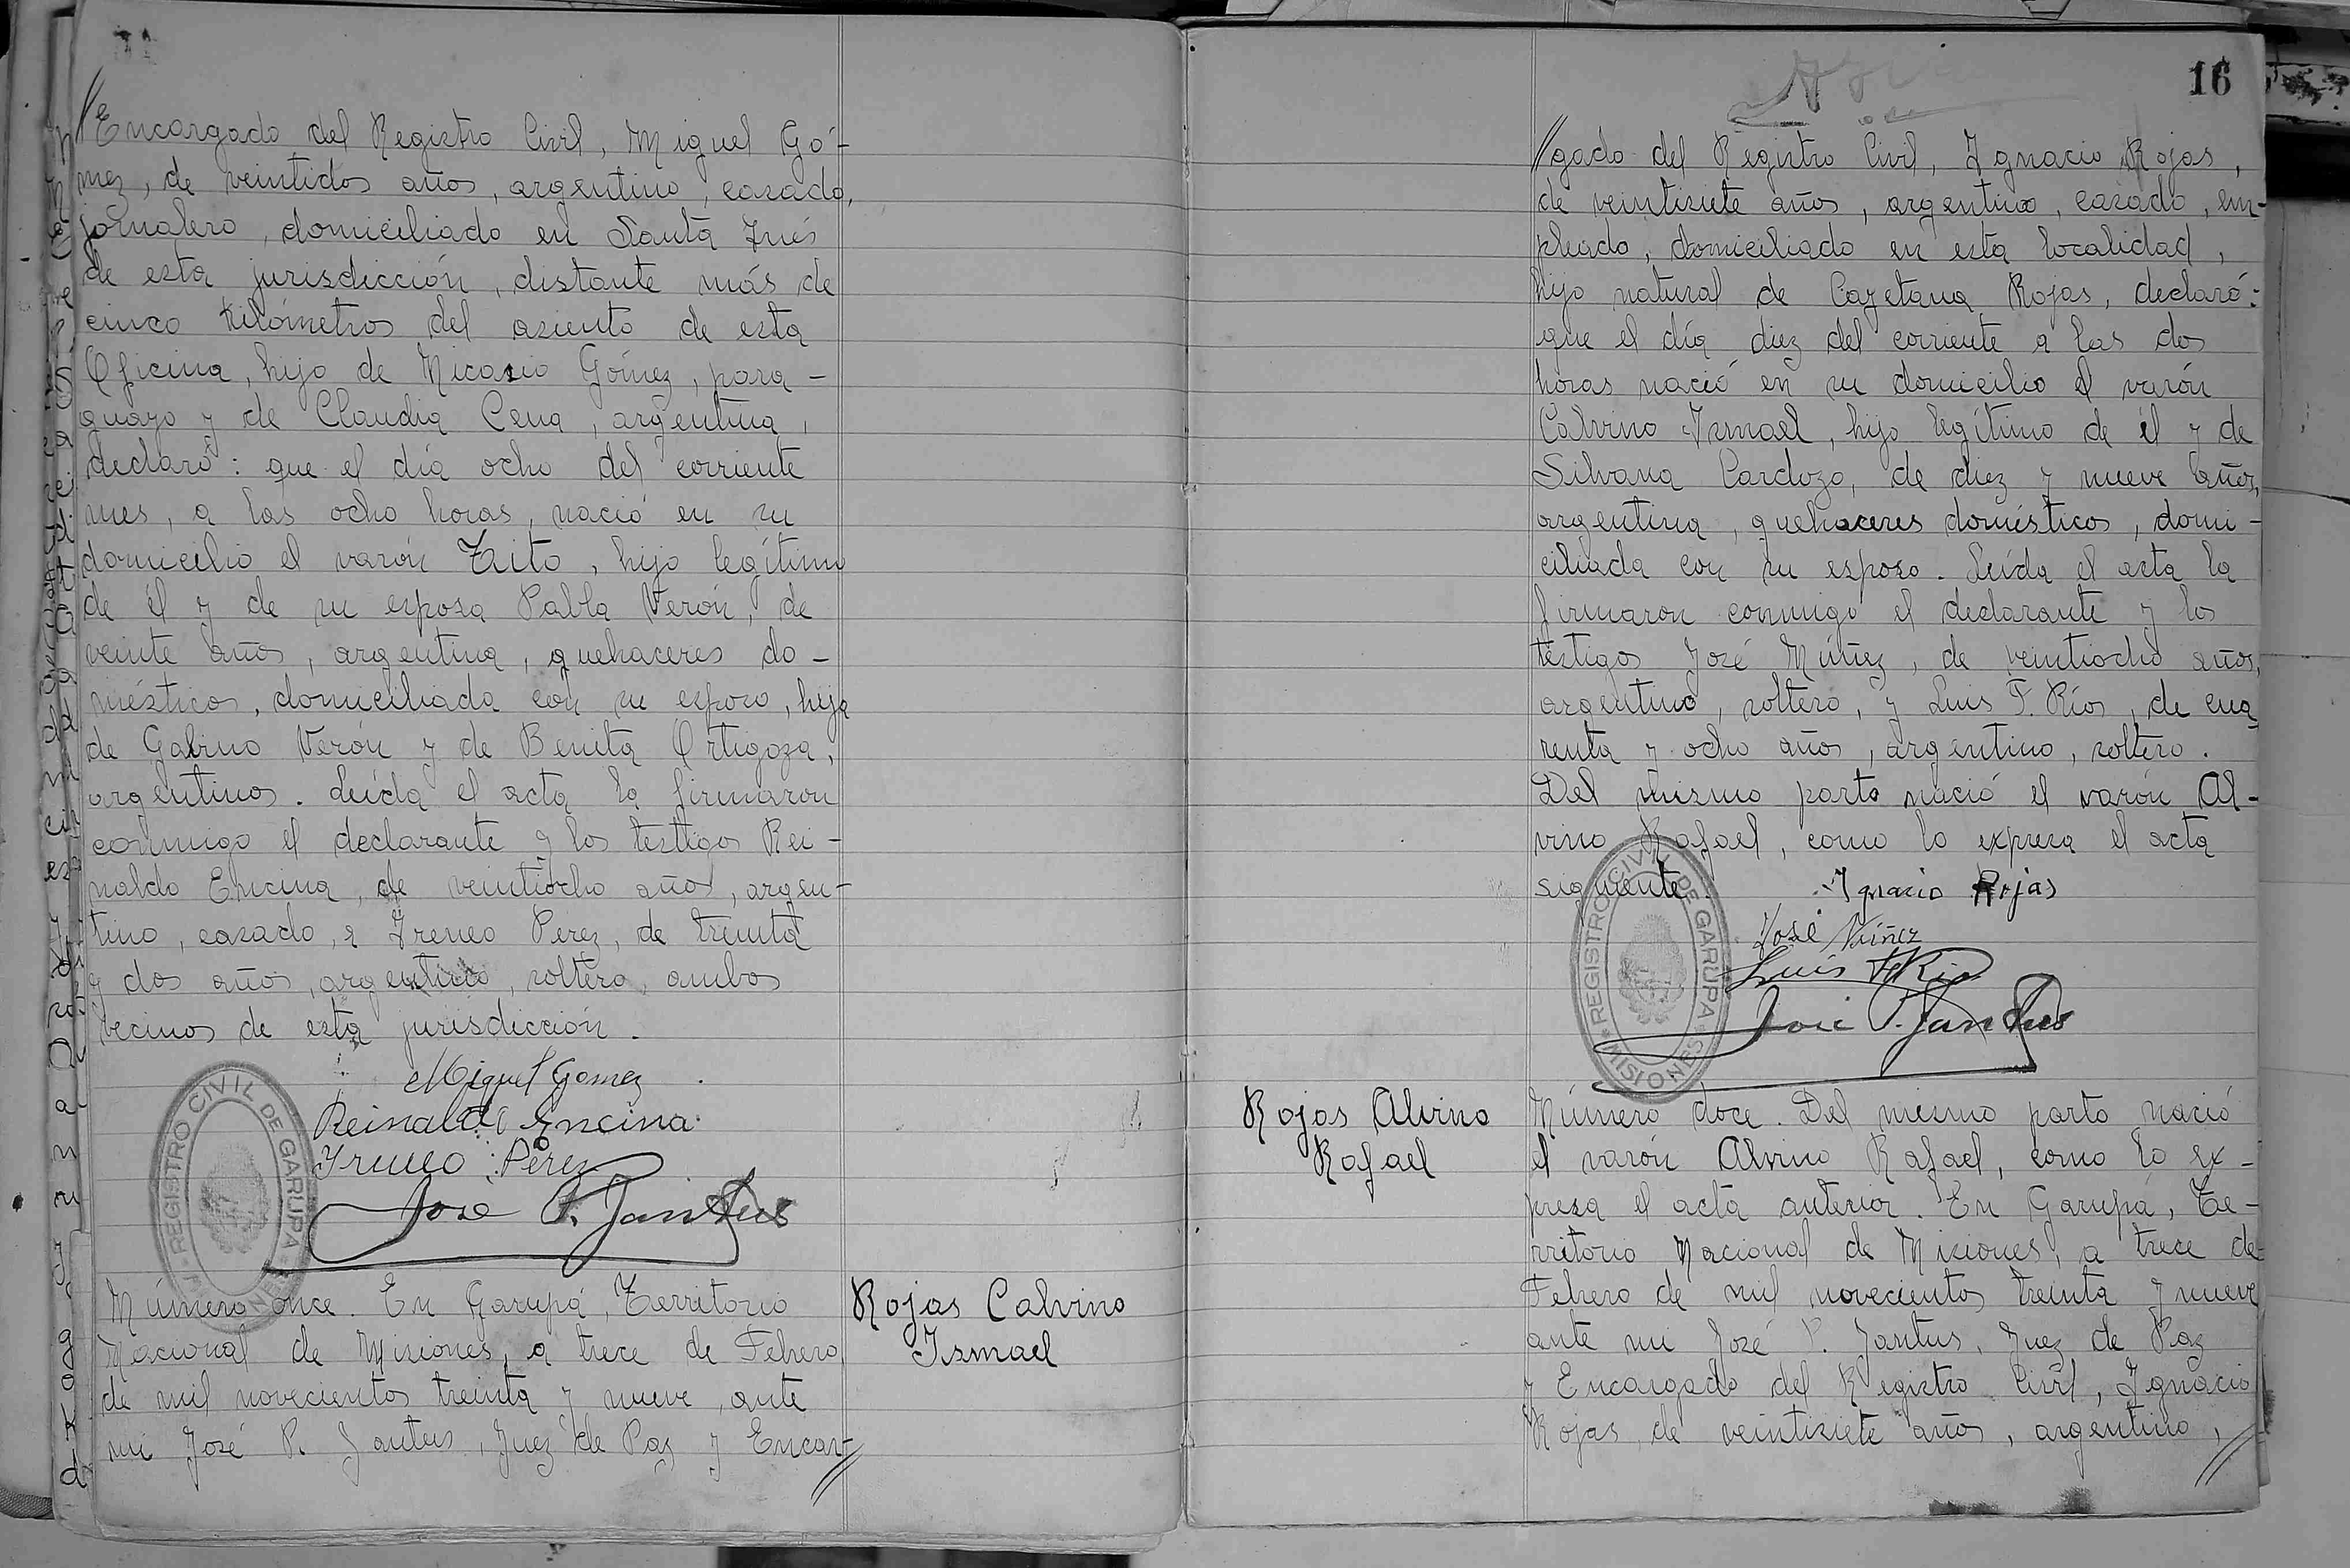 //Encargado del Registro Civil, Miguel Gó-
mez, de veintidos años, argentino, casado,
jornalero, domiciliado en Santa Inés
de esta jurisdicción, distante más de
cinco kilómetros del asiento de esta
Oficina, hijo de Nicasio Gómez, para-
guayo y de Claudia Cena, argentina,
declaró: que el día ocho del corriente
mes, a las ocho horas, nació en su
domicilio el varón Tito, hijo legítimo
de él y de su esposa Pabla Verón, de
veinte años, argentina, quehaceres do-
mésticos, domiciliada con su esposo, hija
de Gabino Verón y de Benita Ortigoza,
argentinos. Leída el acta la firmaron
conmigo el declarante y los testigos Rei-
naldo Encina, de veintiocho años, argen-
tino, casado, e Ireneo Perez, de treinta
y dos años, argentino, soltero, ambos
vecinos de esta jurisdicción.
Miguel Gomez
Reinaldo Encina
Ireneo Pérez
José P. Jantus
REGISTRO CIVIL DE GARUPA
Número once. En Garupá, Territorio
Nacional de Misiones, a trece de Febrero
de mil novecientos treinta y nueve, ante
mi José P. Jantus, Juez de Paz y Encar-//
Rojas Calvino
Ismael
16
//gado del Registro Civil, Ignacio Rojas,
de veintisiete años, argentino, casado, em-
pleado, domiciliado en esta localidad,
hijo natural de Cayetana Rojas, declaró:
que el día diez del corriente a las dos
horas nació en su domicilio el varón
Calvino Ismael, hijo legítimo de él y de
Silvana Cardozo, de diez y nueve años,
argentina, quehaceres domésticos, domi-
ciliada con su esposo. Leída el acta la
firmaron conmigo el declarante y los
testigos José Núñez, de veintiocho años,
argentino, soltero, y Luis F. Ríos, de cua-
renta y ocho años, argentino, soltero.
Del mismo parto nació el varón Al-
vino Rafael, como lo expresa el acta
siguiente.
Ignacio Rojas
José Núñez
Luis F Rios
José P. Jantus
REGISTRO CIVIL DE GARUPA
MISIONES
Rojas Alvino
Rafael
Número doce. Del mismo parto nació
el varón Alvino Rafael, como lo ex-
presa el acta anterior. En Garupá, Te-
rritorio Nacional de Misiones, a trece de
Febrero de mil novecientos treinta y nueve
ante mi José P. Jantus, Juez de Paz
y Encargado del Registro Civil, Ignacio
Rojas, de veintisiete años, argentino, //